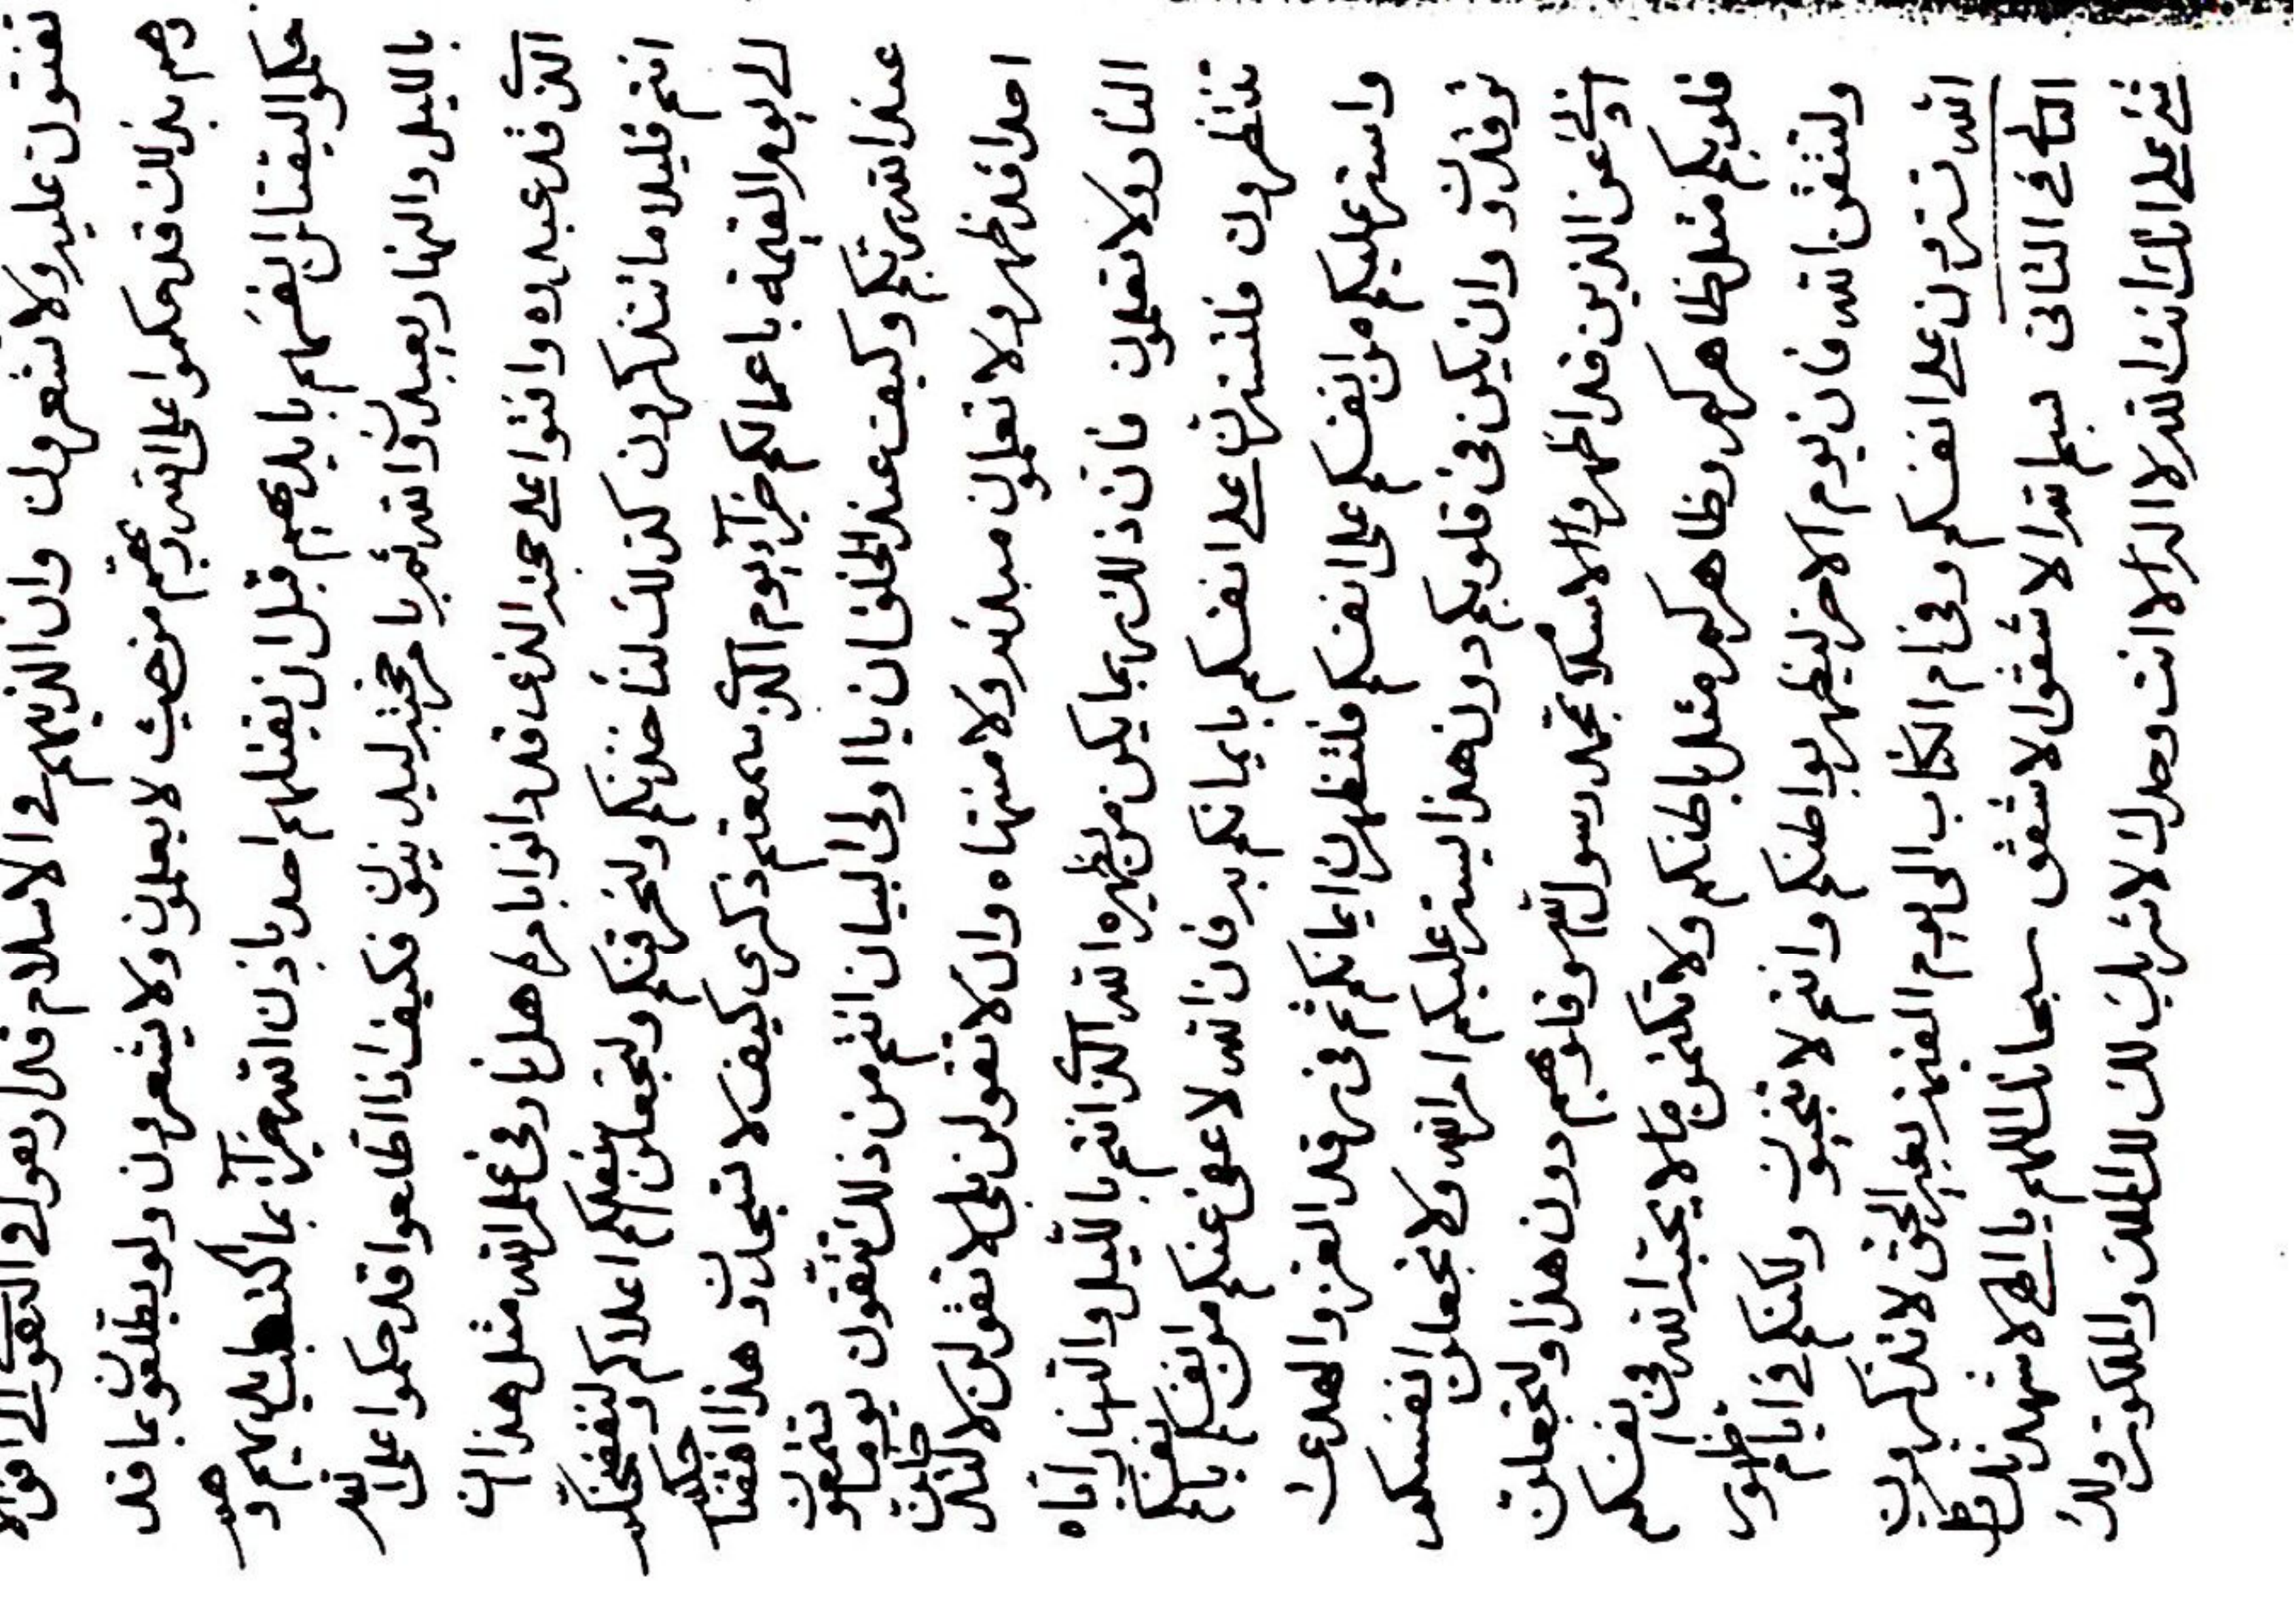 تفتون عليه ولا تشعرون وان الذينهم في الاسلام قد ارتعوا في التقوى الى افق الا
وهم بذلك قد حكموا على الله ربهم من حيث لا يعلمون ولا يشعرون ولو يطلعن بما قد
حكموا ليقتلن انفسهم بايديهم قبل ان يقتلهم احد باذن الله جزآء بما اكتسب ايديهم و هم
بالليل والنهار يعبدون الله ثم بامر حجته ليدينون فكيف اذا اطلعوا قد حكموا على الله
الذي قد عبدوه وافتوا على حجته الذي قد دانوا بامره هل نار في علم الله مثل هذا ان
انتم قليلا ما تتذكرون كذلك لناخذنكم ولنحرقنكم ولنجعلن نفعكم اعلامكم ولنفضحنكم
الى يوم القيمة باعمالكم جزآء يوم الذي سمعتم ذكري كيف لا تنجدن و هذا افتنا حكم
عند الله ربكم وكيف عند الخلق ان يا اولى البيان انتم من ذلك تتقون يوما تتمعون
احد اقد ظهر ولا تعلمون مبدئه ولا منتهاه وان لا تقولن بلى لا تقولن لا لتدخلن
النار ولا تعلمون فان ذلك ربما يكن من يظهره الله الذي انتم بالليل والنهار اياه
تنتظرون فلتسترن على انفسكم بايمانكم به فان الله لا عفى عنكم من انفسكم بانفسكم
واستر عليكم من انفسكم على انفسكم فلتظهرن ايمانكم ثم في قد العز والهدى
توقدون وان يكن في قلوبكم دون هذا ليستر عليكم امر الله ولا تجعلن انفسكم
ادنى عن الذين قد اظهروا الاسلام بمحمد رسول الله وقلوبهم دون هذا ولتجعلن
قلوبكم مثل ظاهركم وظاهركم مثل باطنكم ولا تكتمن ما لا يحبه الله في انفسكم
ولتتقن الله فان يوم الاخر ليظهر بواطنكم وانتم لا تحبون ولكنكم في ايام ظهور
الله تسترون على انفسكم وفي ام الكتاب الى يوم القيمة بغير الحق لا تذكرون
الثاني في الثاني بسم الله الاشقق الاشقق سبحانك اللهم يا الهي لاشهدنك وكل
شيء على انك انت الله لا اله الا انت وحدك لا شريك لك لك الملك والملكوت ولك